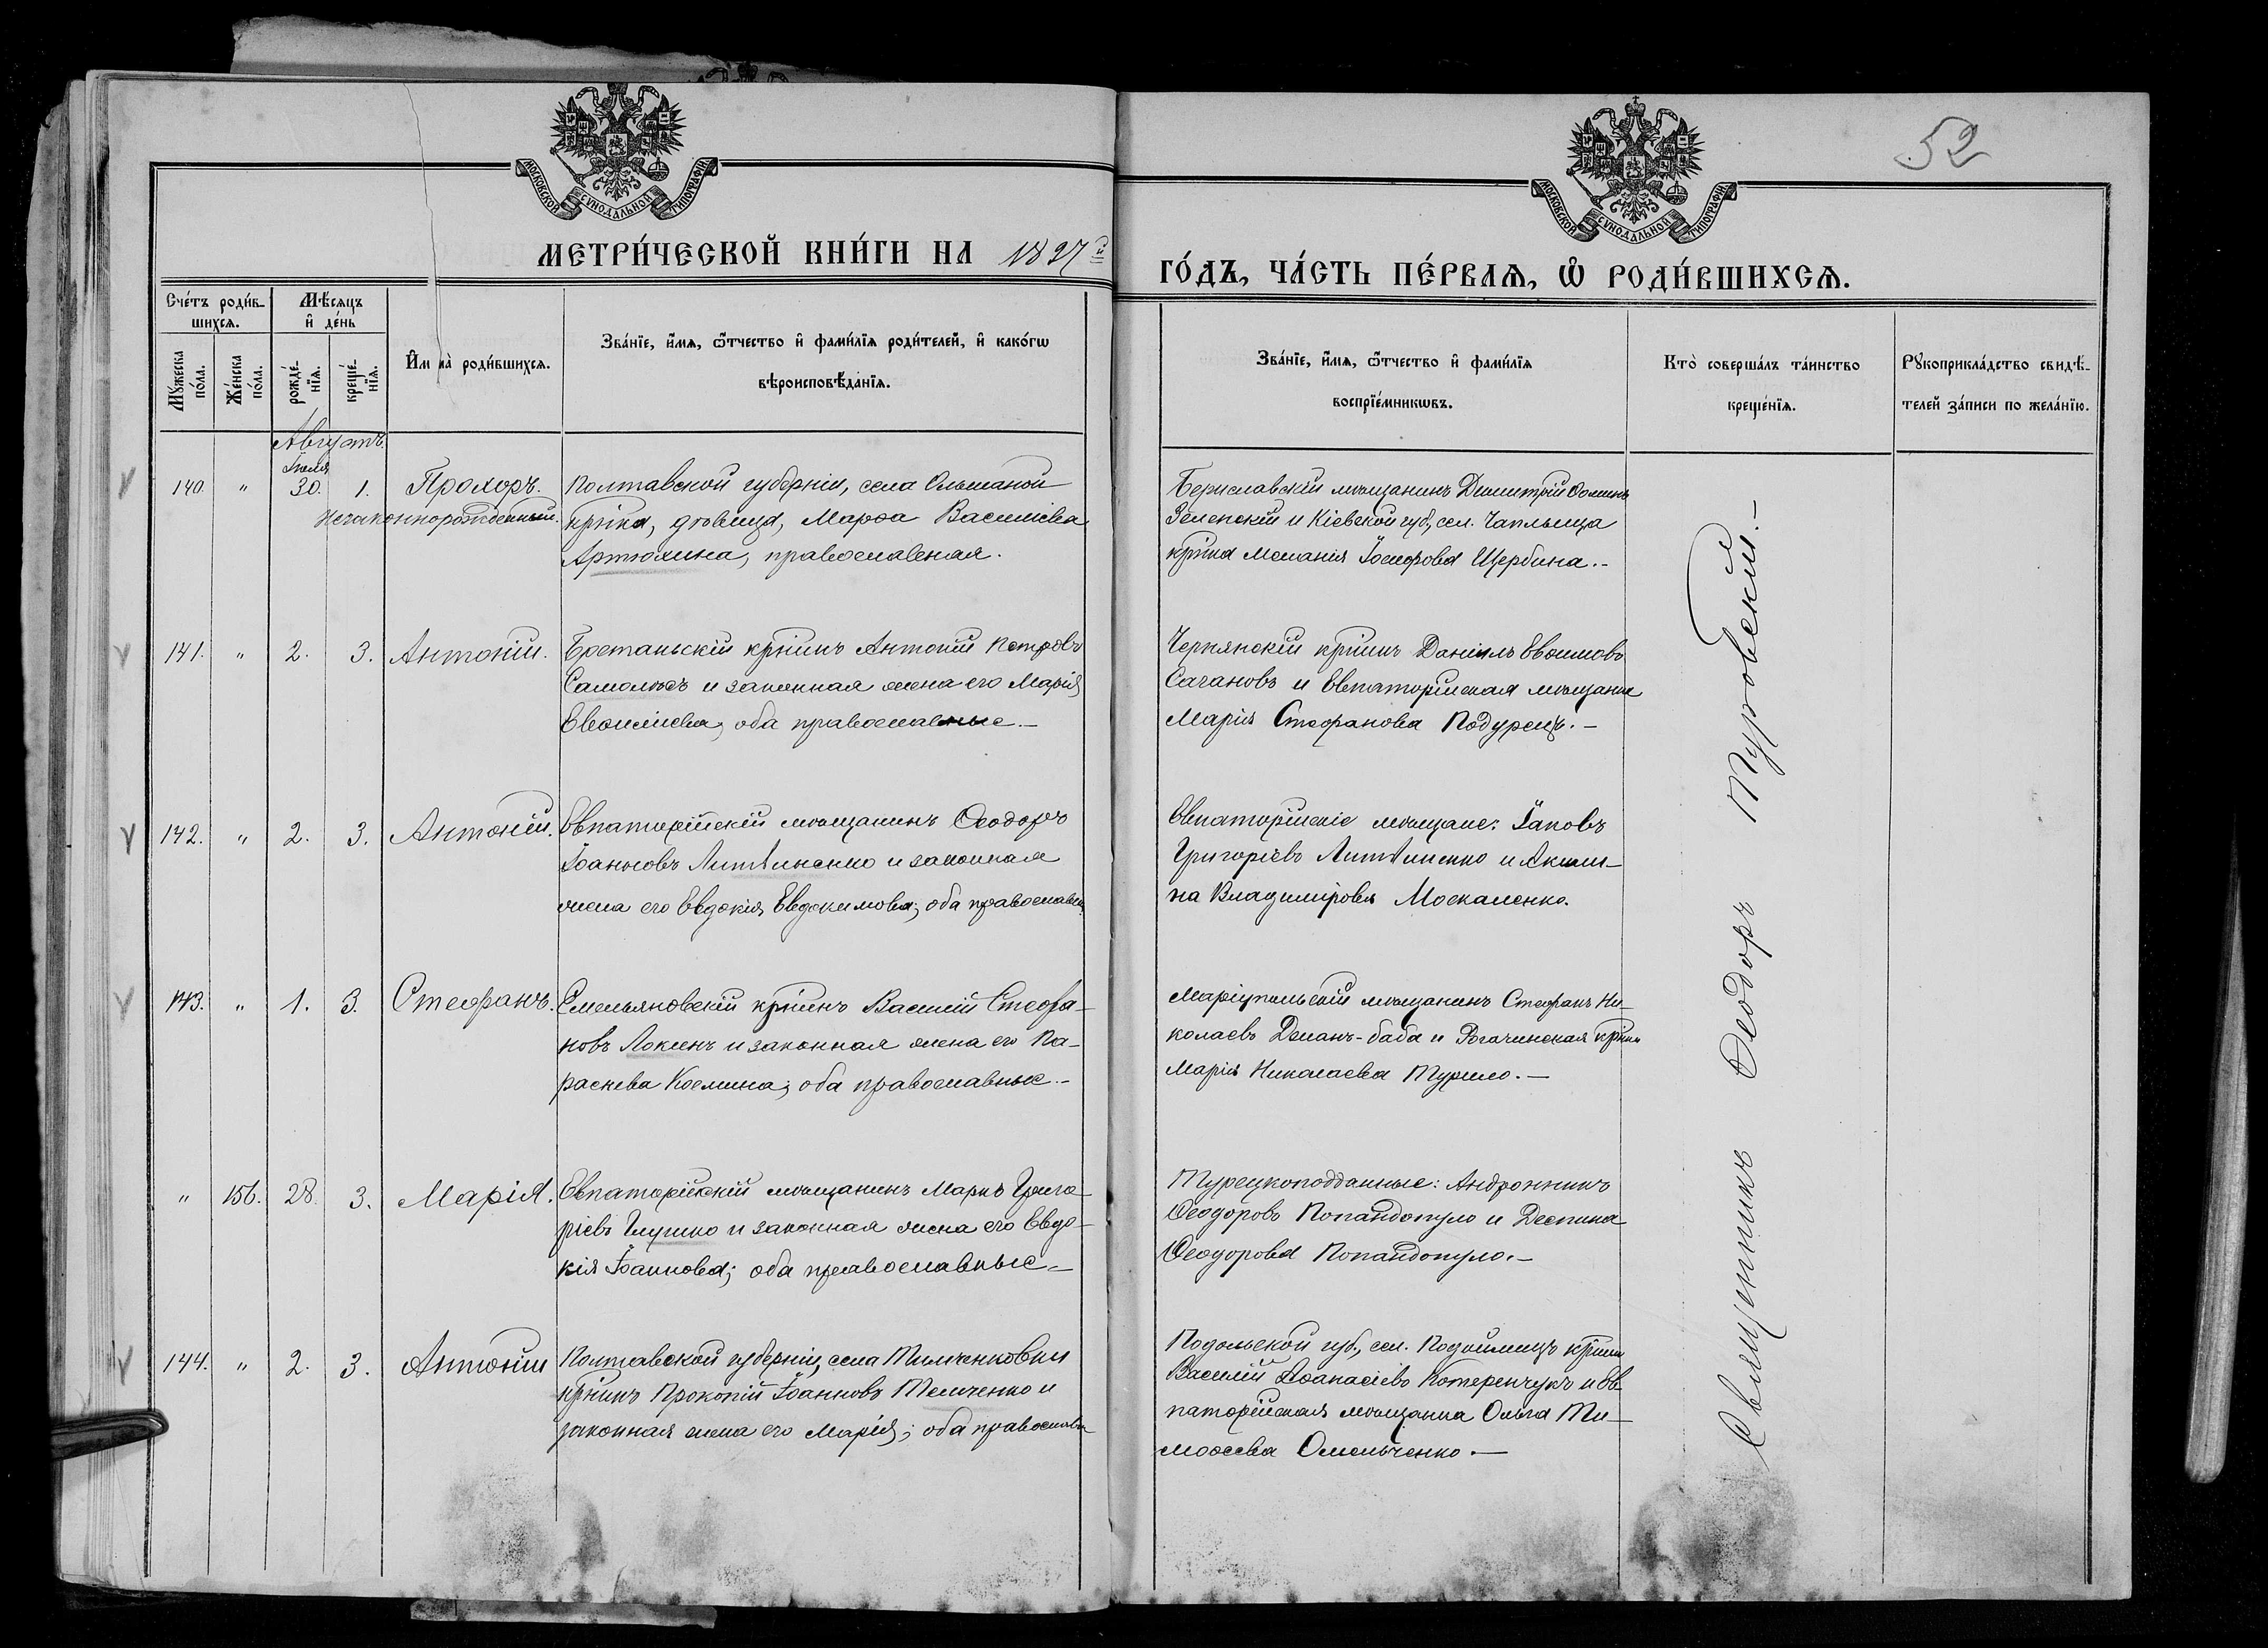 52
МОСКОВСКОЙ СѴНОДАЛЬНОЙ ТИПОГРАФІИ
МОСКОВСКОЙ СѴНОДАЛЬНОЙ ТИПОГРАФІИ
МЕТРИ́ЧЕСКОЙ КНИ́ГИ НА 1897й
ГО́ДЪ, ЧА́СТЬ ПЕ́РВАѦ, Ѡ҆ РОДИ́ВШИХСѦ.
Сче́тъ роди́вшихсѧ.
Мꙋ́жеска по́ла.
Же́нска по́ла.
Мѣ́сѧцъ и҆ де́нь
рожде́нїѧ.
креще́нїѧ.
И҆мена̀ роди́вшихсѧ.
Зва́нїе, и҆́мѧ, ѻ҆́тчество и҆ фами́лїѧ роди́телей, и҆ како́гѡ
вѣроисповѣ́данїѧ.
Зва́нїе, и҆́мѧ, ѻ҆́тчество и҆ фами́лїѧ
воспрїе́мникѡвъ.
Кто̀ соверша́лъ та́инство
креще́нїѧ.
Рꙋкоприкла́дство свидѣ́-
телей за́писи по жела́нїю.
Августъ.
Іюля
140. " 30. 1. Прохоръ.
Незаконнорожденный.
Полтавской губерніи, села Ольшаной
крѣнка, дѣвица, Марѳа Василіева
Артюхина, православная.
Бериславскій мѣщанинъ Димитрій Ѳоминъ
Зеленскій и Кіевской губ., сел. Чаплища
крѣнка Меланія Іосифова Щербина.-
141. " 2. 3. Антоній.
Бретаньскій крѣнинъ Антоній Петровъ
и законная жена его Марія
Евѳиміева, оба православные.-
Чернянскій крѣнинъ Даніилъ Евѳимовъ
Сачановъ и Евпаторійская мѣщанка
Марія Стефанова Подурецъ.-
142. " 2. 3. Антоній.
Евпаторійскій мѣщанинъ Ѳеодоръ
Іоанновъ Литвиненко и законная
жена его Евдокія Евдокимова; оба православн.
Евпаторійскіе мѣщане: Іаковъ
Григоріевъ Литвиненко и Акили-
на Владимірова Москаленко.
143. " 1. 3. Стефанъ.
Емельяновскій крѣнинъ Василій Стефа-
новъ Локшенъ и законная жена его Па-
раскева Космина; оба православные.-
Маріупольскій мѣщанинъ Стефанъ Ни-
колаевъ Деканъ-баба и Рогачинская крѣнка
Марія Николаева Турило.-
" 156. 28. 3. Марія.
Евпаторійскій мѣщанинъ Маркъ Григо-
ріевъ Глушко и законная жена его Евдо-
кія Іоаннова; оба православные.-
Турецкоподданные: Андронникъ
Ѳеодоровъ Попандопуло и Деспина
Ѳеодорова Попандопуло.-
144. " 2. 3. Антоній
Полтавской губерніи, села Тимченковки
крѣнинъ Прокопій Іоанновъ Темченко и
законная жена его Марія; оба православн
Подольской губ., сел. Подоймицъ крѣнинъ
Василій Аѳанасіевъ Котеренчукъ и Ев-
паторійская мѣщанка Ольга Ти-
моѳеева Омельченко.-
Священникъ Ѳеодоръ Туровскій.-